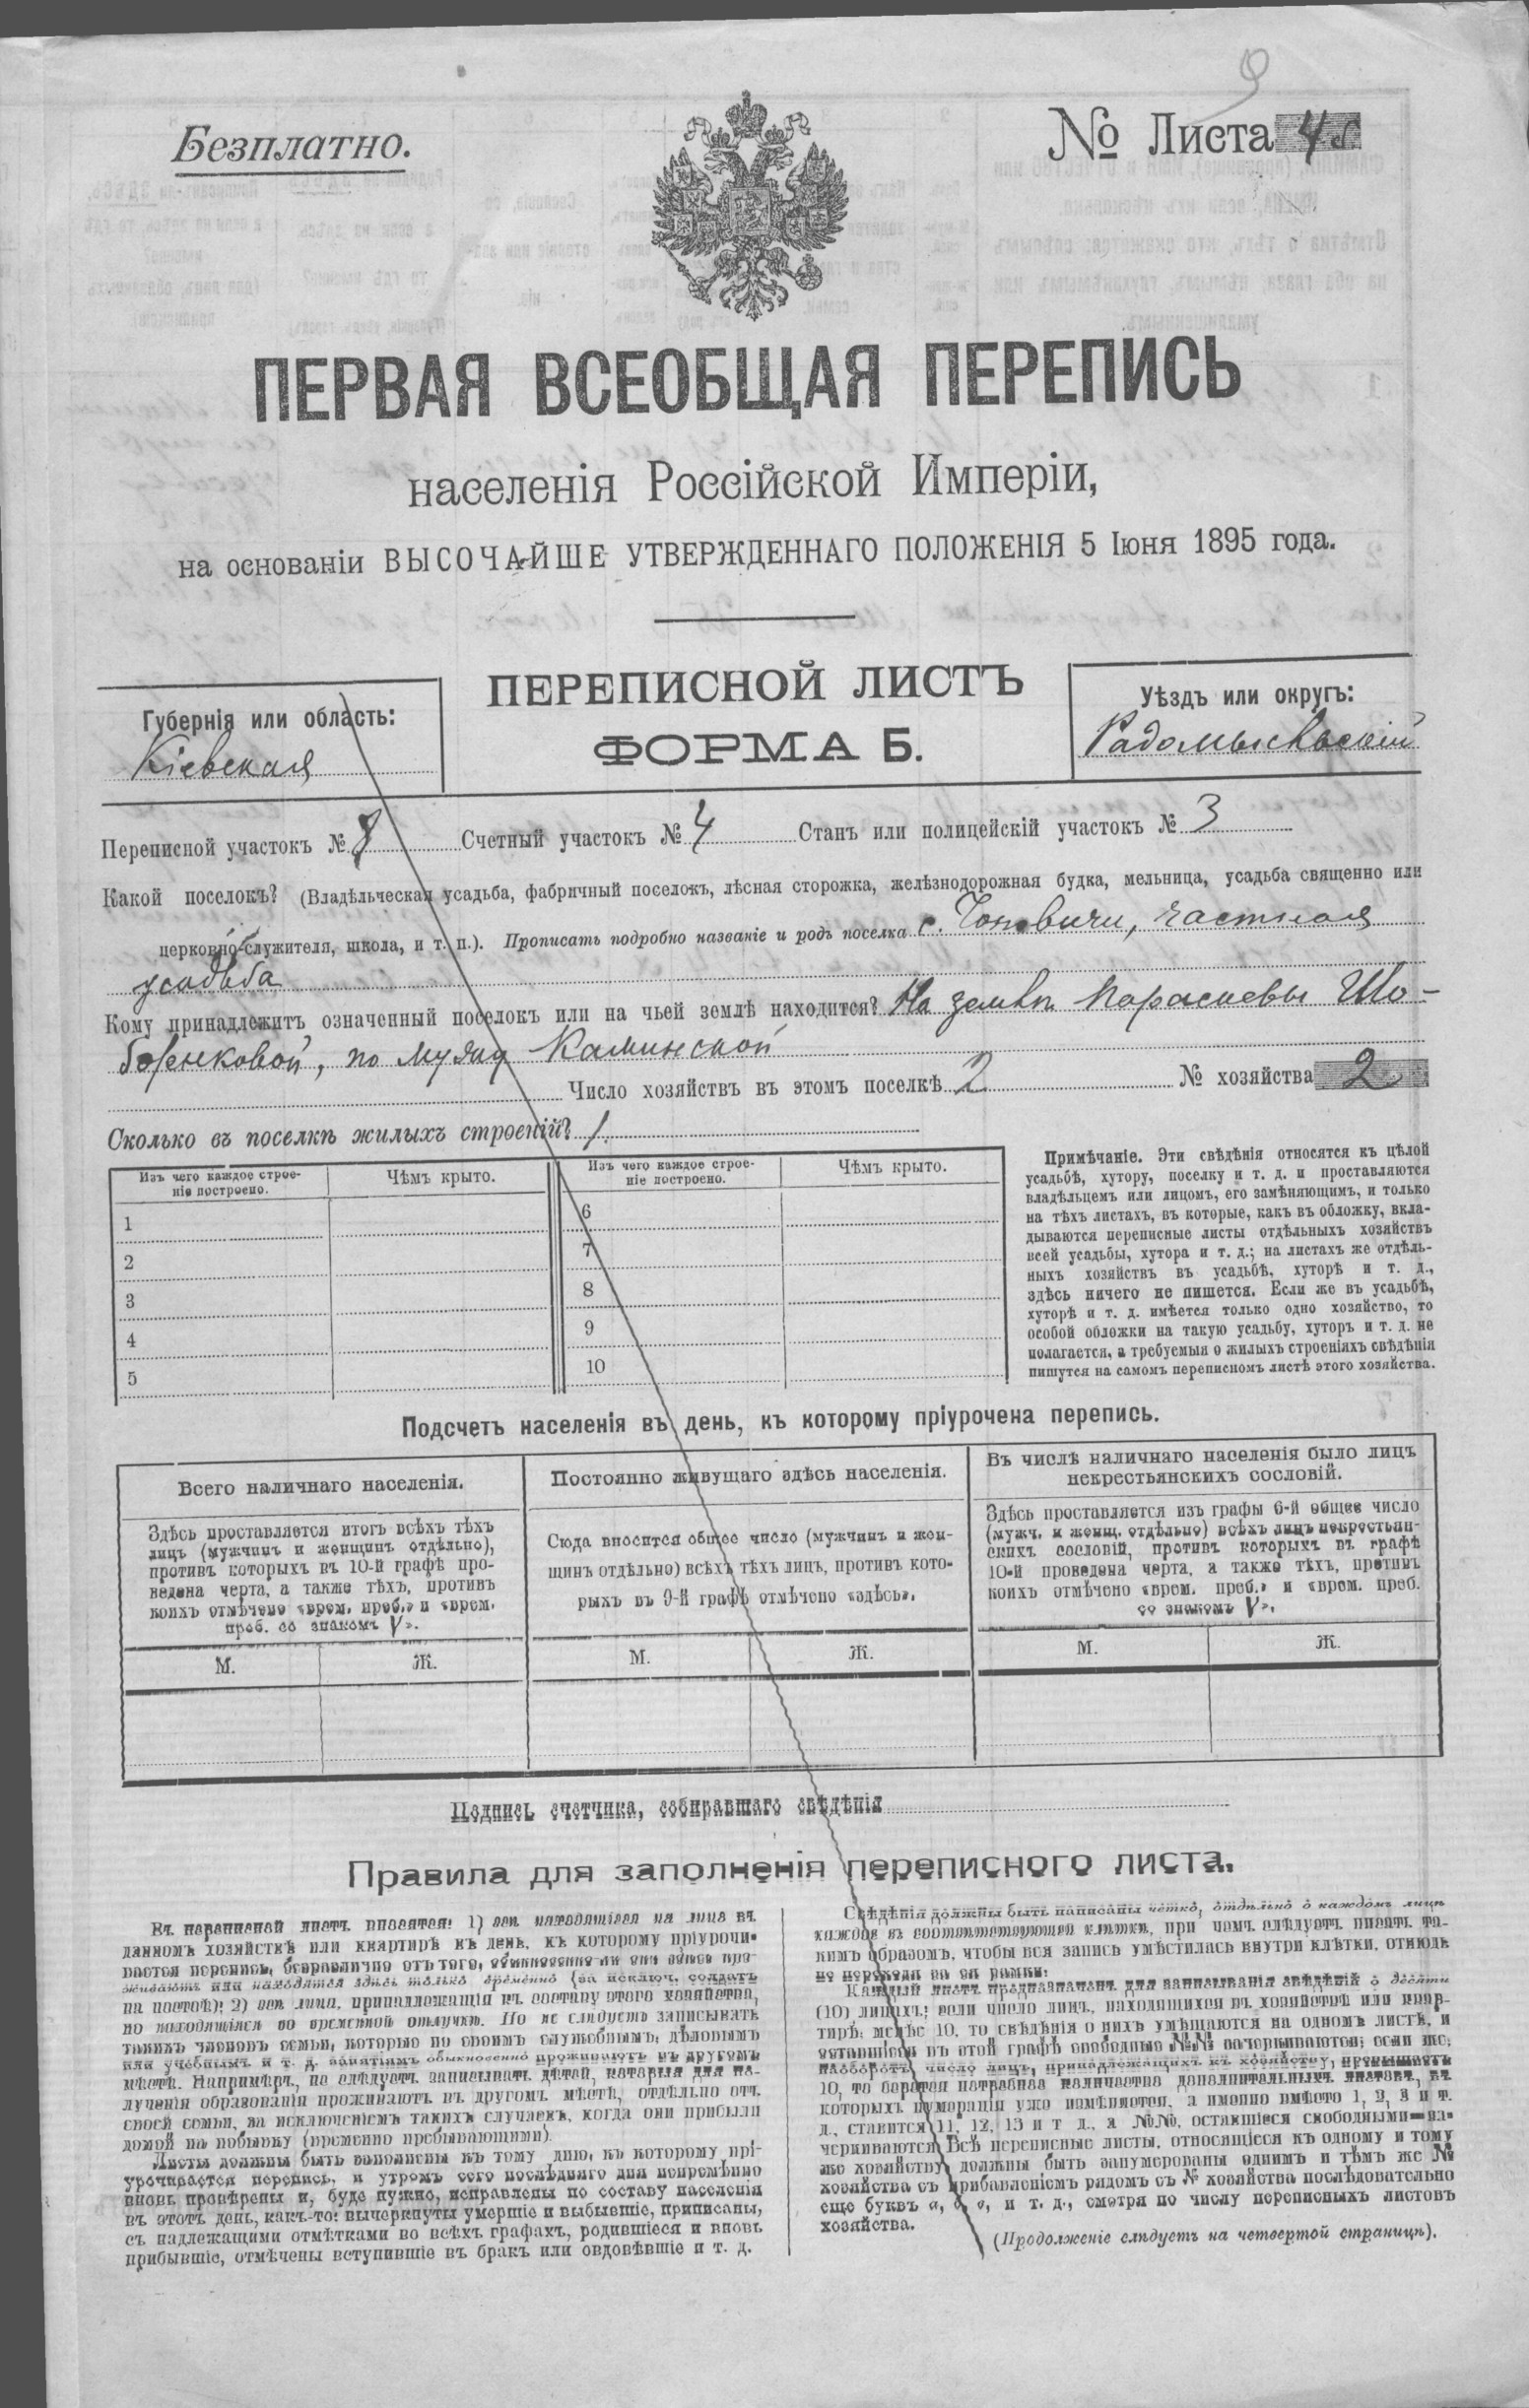 9
Безплатно.
№ Листа 4
ПЕРВАЯ ВСЕОБЩАЯ ПЕРЕПИСЬ
населенія Россійской Имперіи,
на основаніи ВЫСОЧАЙШЕ УТВЕРЖДЕННАГО ПОЛОЖЕНІЯ 5 Іюня 1895 года.
Губернія или область:
Кіевская
ПЕРЕПИСНОЙ ЛИСТЪ
ФОРМА Б.
Уѣздъ или округъ:
Радомысльскій
Переписной участокъ № 8 Счетный участокъ № 4 Станъ или полицейскій участокъ № 3
Какой поселокъ? (Владѣльческая усадьба, фабричный поселокъ, лѣсная сторожка, желѣзнодорожная будка, мельница, усадьба священно или
церковно-служителя, школа, и т. п.). Прописать подробно названіе и родъ поселка с. Чоповичи, частная
усадьба
Кому принадлежитъ означенный поселокъ или на чьей землѣ находится? На землѣ Параскевы
по мужу Каминской
Число хозяйствъ въ этомъ поселкѣ 2 № хозяйства 2
Сколько въ поселкѣ жилыхъ строеній? 1.
Изъ чего каждое строе-
ніе построено.
Чѣмъ крыто.
Изъ чего каждое строе-
ніе построено.
Чѣмъ крыто.
1
6
2
7
3
8
4
9
5
10
Примѣчаніе. Эти свѣдѣнія относятся къ цѣлой
усадьбѣ, хутору, поселку и т. д. и проставляются
владѣльцемъ или лицомъ, его замѣняющимъ, и только
на тѣхъ листахъ, въ которые, какъ въ обложку, вкла-
дываются переписные листы отдѣльныхъ хозяйствъ
всей усадьбы, хутора и т. д.; на листахъ же отдѣль-
ныхъ хозяйствъ въ усадьбѣ, хуторѣ и т. д.,
здѣсь ничего не пишется. Если же въ усадьбѣ,
хуторѣ и т. д. имѣется только одно хозяйство, то
особой обложки на такую усадьбу, хуторъ и т. д. не
полагается, а требуемыя о жилыхъ строеніяхъ свѣдѣнія
пишутся на самомъ переписномъ листѣ этого хозяйства.
Подсчетъ населенія въ день, къ которому пріурочена перепись.
Всего наличнаго населенія.
Здѣсь проставляется итогъ всѣхъ тѣхъ
лицъ (мужчинъ и женщинъ отдѣльно),
противъ которыхъ въ 10-й графѣ про-
ведена черта, а также тѣхъ, противъ
коихъ отмѣчено «врем. преб.» и «врем.
преб. со знакомъ V».
М. Ж.
Постоянно живущаго здѣсь населенія.
Сюда вносится общее число (мужчинъ и жен-
щинъ отдѣльно) всѣхъ тѣхъ лицъ, противъ кото-
рыхъ въ 9-й графѣ отмѣчено «здѣсь».
М. Ж.
Въ числѣ наличнаго населенія было лицъ
некрестьянскихъ сословій.
Здѣсь проставляется изъ графы 6-й общее число
(мужч. и женщ. отдѣльно) всѣхъ лицъ некрестьян-
скихъ сословій, противъ которыхъ въ графѣ
10-й проведена черта, а также тѣхъ, противъ
коихъ отмѣчено «врем. преб.» и «врем. преб.
со знакомъ V».
М. Ж.
Подпись счетчика, собиравшаго свѣдѣнія
Правила для заполненія переписного листа.
Въ переписной листъ вносятся: 1) всѣ находящіеся на лицо въ
данномъ хозяйствѣ или квартирѣ въ день, къ которому пріурочи-
вается перепись, безразлично отъ того, обыкновенно ли они здѣсь про-
живаютъ или находятся здѣсь только временно (за исключ. солдатъ
на постоѣ); 2) всѣ лица, принадлежащія къ составу этого хозяйства,
но находящіяся во временной отлучкѣ. Но не слѣдуетъ записывать
такихъ членовъ семьи, которые по своимъ служебнымъ, дѣловымъ
или учебнымъ и т. д. занятіямъ обыкновенно проживаютъ въ другомъ
мѣстѣ. Напримѣръ, не слѣдуетъ записывать дѣтей, которыя для по-
лученія образованія проживаютъ въ другомъ мѣстѣ, отдѣльно отъ
своей семьи, за исключеніемъ такихъ случаевъ, когда они прибыли
домой на побывку (временно пребывающими).
Листы должны быть заполнены къ тому дню, къ которому прі-
урочивается перепись, и утромъ сего послѣдняго дня непремѣнно
вновь провѣрены и, буде нужно, исправлены по составу населенія
въ этотъ день, какъ-то: вычеркнуты умершіе и выбывшіе, приписаны,
съ надлежащими отмѣтками во всѣхъ графахъ, родившіеся и вновь
прибывшіе, отмѣчены вступившіе въ бракъ или овдовѣвшіе и т. д.
Свѣдѣнія должны быть написаны четко, отдѣльно о каждомъ лицѣ
каждое въ соотвѣтствующей клѣткѣ, при чемъ слѣдуетъ писать та-
кимъ образомъ, чтобы вся запись умѣстилась внутри клѣтки, отнюдь
не переходя за ея рамки.
Каждый листъ предназначенъ для записыванія свѣдѣній о десяти
(10) лицахъ; если число лицъ, находящихся въ хозяйствѣ или квар-
тирѣ, менѣе 10, то свѣдѣнія о нихъ умѣщаются на одномъ листѣ, и
оставшіеся въ этой графѣ свободные №№ зачеркиваются; если же,
наоборотъ, число лицъ, принадлежащихъ къ хозяйству, превышаетъ
10, то берется потребное количество дополнительныхъ листовъ, въ
которыхъ нумерація уже измѣняется, а именно вмѣсто 1, 2, 3 и т.
д., ставится 11, 12, 13 и т д., а №№, оставшіеся свободными—за-
черкиваются. Всѣ переписные листы, относящіеся къ одному и тому
же хозяйству, должны быть занумерованы однимъ и тѣмъ же №
хозяйства съ прибавленіемъ рядомъ съ № хозяйства послѣдовательно
еще буквъ а, б, в, и т. д., смотря по числу переписныхъ листовъ
хозяйства.
(Продолженіе слѣдуетъ на четвертой страницѣ).